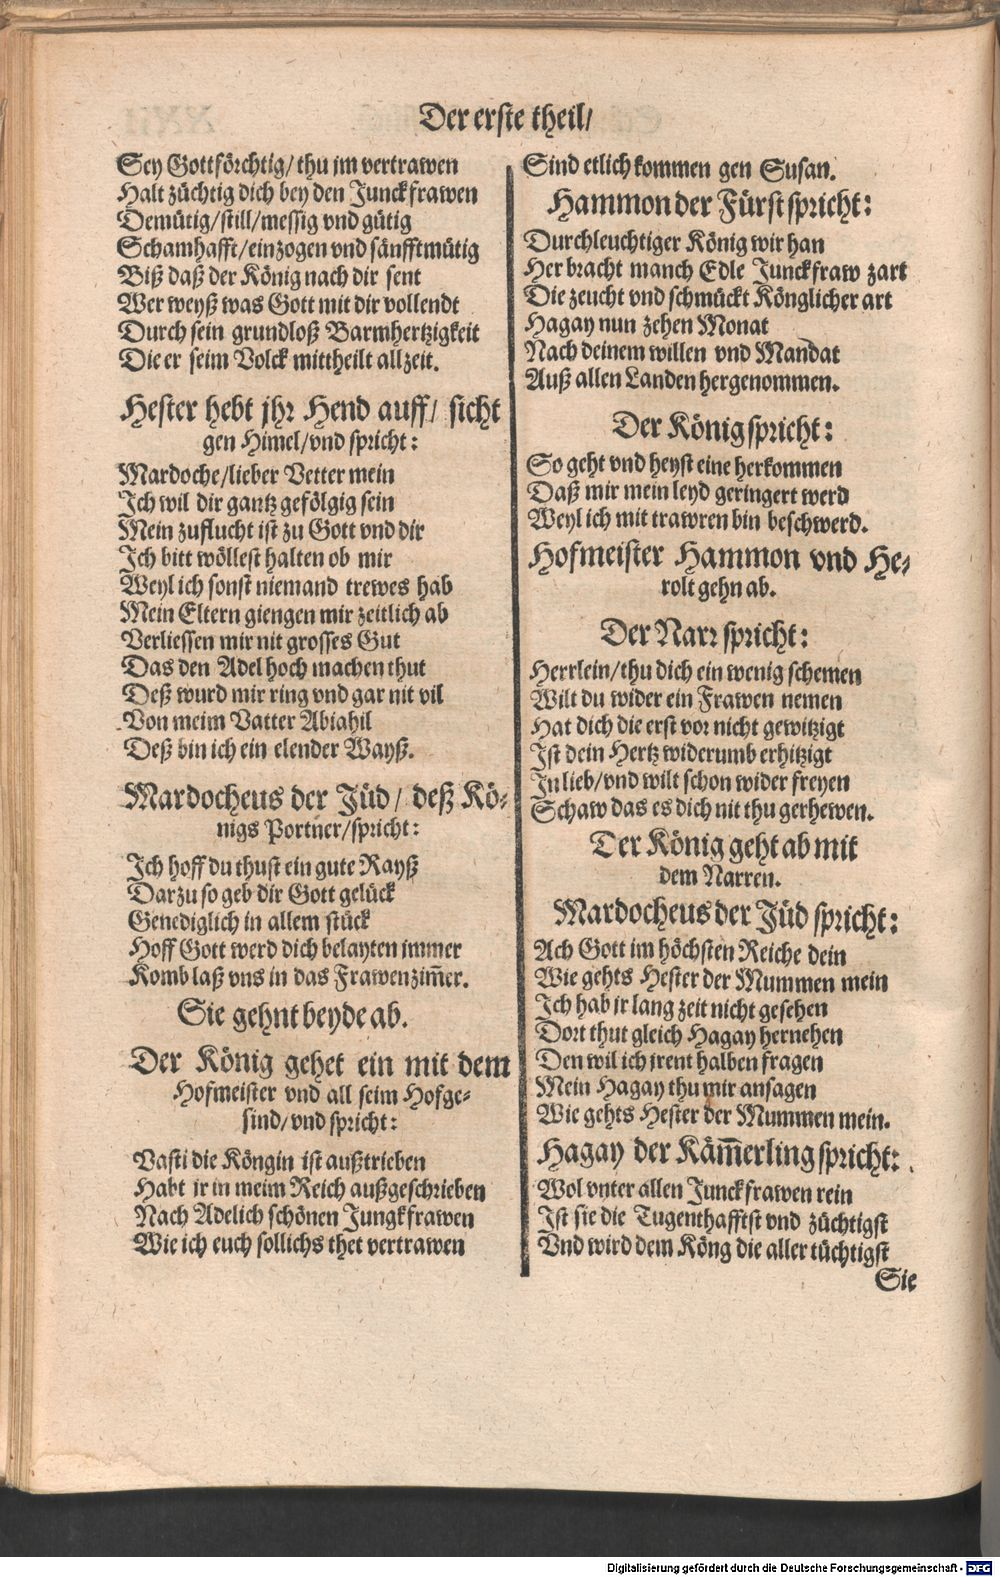 Der erste theil/
Sey Gottförchtig/ thu jm vertrawen
Halt züchtig dich bey den Junckfrawen
Demütig/still/messig vnd gütig
Schamhafft/einzogen vnd sänfftmütig
Biß daß der König nach dir sent
Wer weyß was Gott mit dir vollendt
Durch sein grundloß Barmhertzigkeit
Die er seim Volck mittheilt allzeit.
Hester hebt jhr Hend auff/ sicht
gen Himel/vnd spricht:
Mardoche/lieber Vetter mein
Ich wil dir gantz gefölgig sein
Mein zuflucht ist zu Gott vnd dir
Ich bitt wöllest halten ob mir
Weyl ich sonst niemand trewes hab
Mein Eltern giengen mir zeitlich ab
Verliessen mir nit grosses Gut
Das den Adel hoch machen thut
Deß wurd mir ring vnd gar nit vil
Von meim Vatter Abiahil
Deß bin ich ein elender Wayß.
Mardocheus der Jüd/ deß Kö-
nigs Portner/spricht:
Ich hoff du thust ein gute Rayß
Darzu so geb dir Gott gelück
Genediglich in allem stück
Hoff Gott werd dich belayten jmmer
Komb laß vns in das Frawenzim̃er.
Sie gehnt beyde ab.
Der König gehet ein mit dem
Hofmeister vnd all seim Hofge-
sind/vnd spricht:
Vasti die Köngin ist außtrieben
Habt jr in meim Reich außgeschrieben
Nach Adelich schönen Jungkfrawen
Wie ich euch sollichs thet vertrawen
Sind etlich kommen gen Susan.
Hammon der Fürst spricht:
Durchleuchtiger König wir han
Her bracht manch Edle Junckfraw zart
Die zeucht vnd schmückt Könglicher art
Hagay nun zehen Monat
Nach deinem willen vnd Mandat
Auß allen Landen hergenommen.
Der König spricht:
So geht vnd heyst eine herkommen
Daß mir mein leyd geringert werd
Weyl ich mit trawren bin beschwerd.
Hofmeister Hammon vnd He-
rolt gehn ab.
Der Narr spricht:
Herrlein/thu dich ein wenig schemen
Wilt du wider ein Frawen nemen
Hat dich die erst vor nicht gewitzigt
Ist dein Hertz widerumb erhitzigt
In lieb/vnd wilt schon wider freyen
Schaw das es dich nit thu gerhewen.
Der König geht ab mit
dem Narren.
Mardocheus der Jüd spricht:
Ach Gott im höchsten Reiche dein
Wie gehts Hester der Mummen mein
Ich hab jr lang zeit nicht gesehen
Dort thut gleich Hagay hernehen
Den wil ich jrent halben fragen
Mein Hagay thu mir ansagen
Wie gehts Hester der Mummen mein.
Hagay der Käm̃erling spricht:
Wol vnter allen Junckfrawen rein
Ist sie die Tugenthafftst vnd züchtigst
Vnd wird dem Köng die aller tüchtigst
Sie
Digitalisierung gefördert durch die Deutsche Forschungsgemeinschaft - DFG